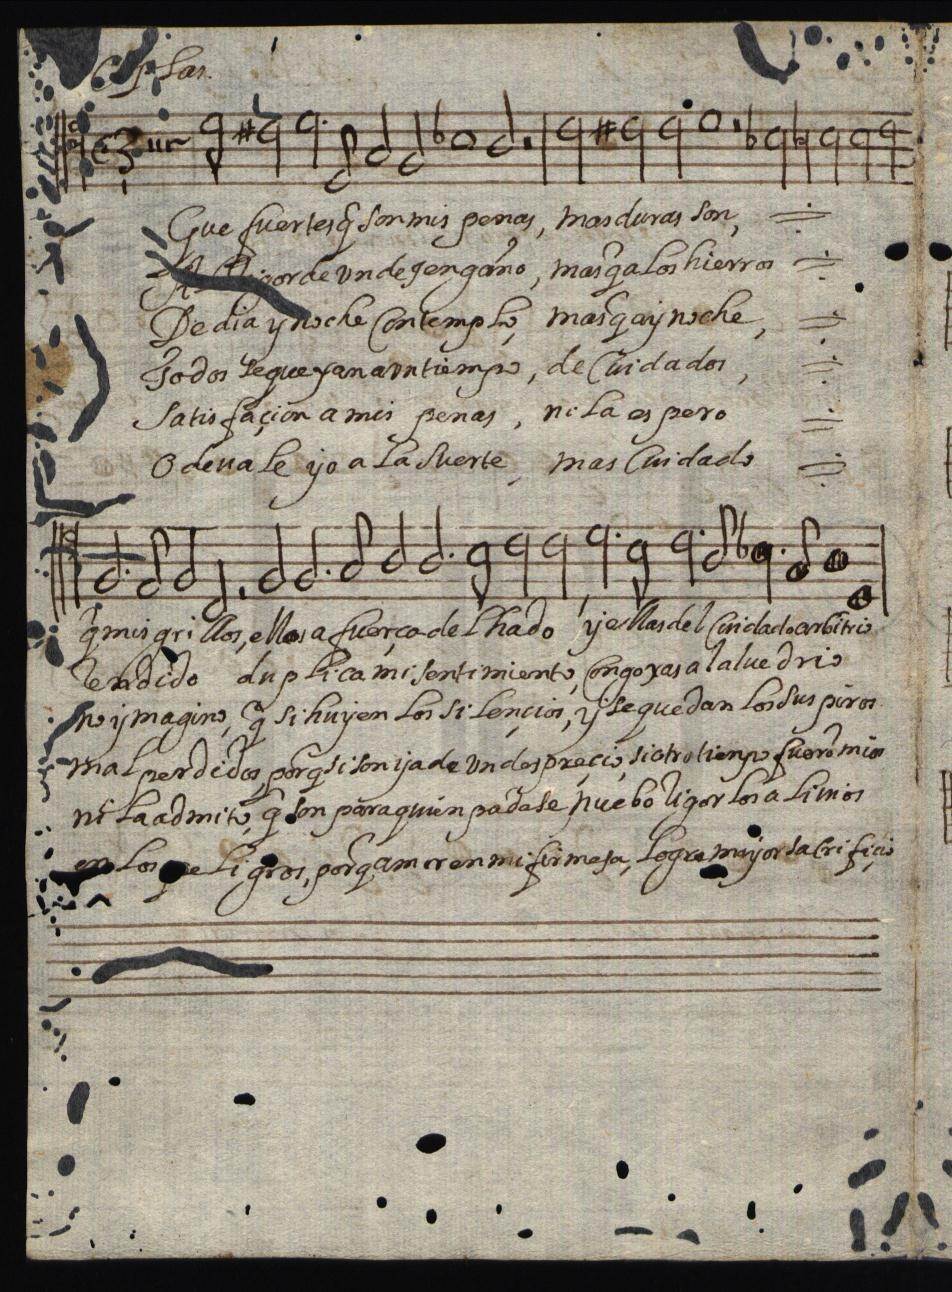 Coplas.
Que fuertes q̃ son mis penas, mas duras son,
Al rigor de un desengaño, mas q̃ a los hierros
De dia y noche Contemplo, mas q̃ ay noche,
Todos se quexan a un tiempo, de Cuidados,
Satisfaçion a mis penas, ni la espero
O deuale yo a la Suerte, mas Cuidado
q̃ mis grillos, ellos a fuerça del hado y ellas del Cuidado arbitrio
Rendido duplica mi sentimiento, Congoxas al aluedrio
no ymagino, q̃ si huyen los silençios, y se quedan los suspiros.
mal perdidos, porq̃ si son ya de un despreçio, si otro tiempo fuerõ mios
ni la admito, q̃ son para quien padese nuebo rigor los aliuios
en los peligros, porq̃ amor en mi firmesa, logre mayor sacrifiçio